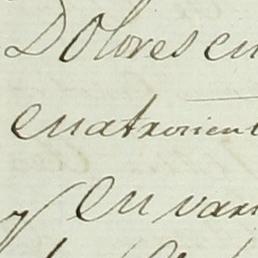 Dolores en
cuatrocient
y en vari